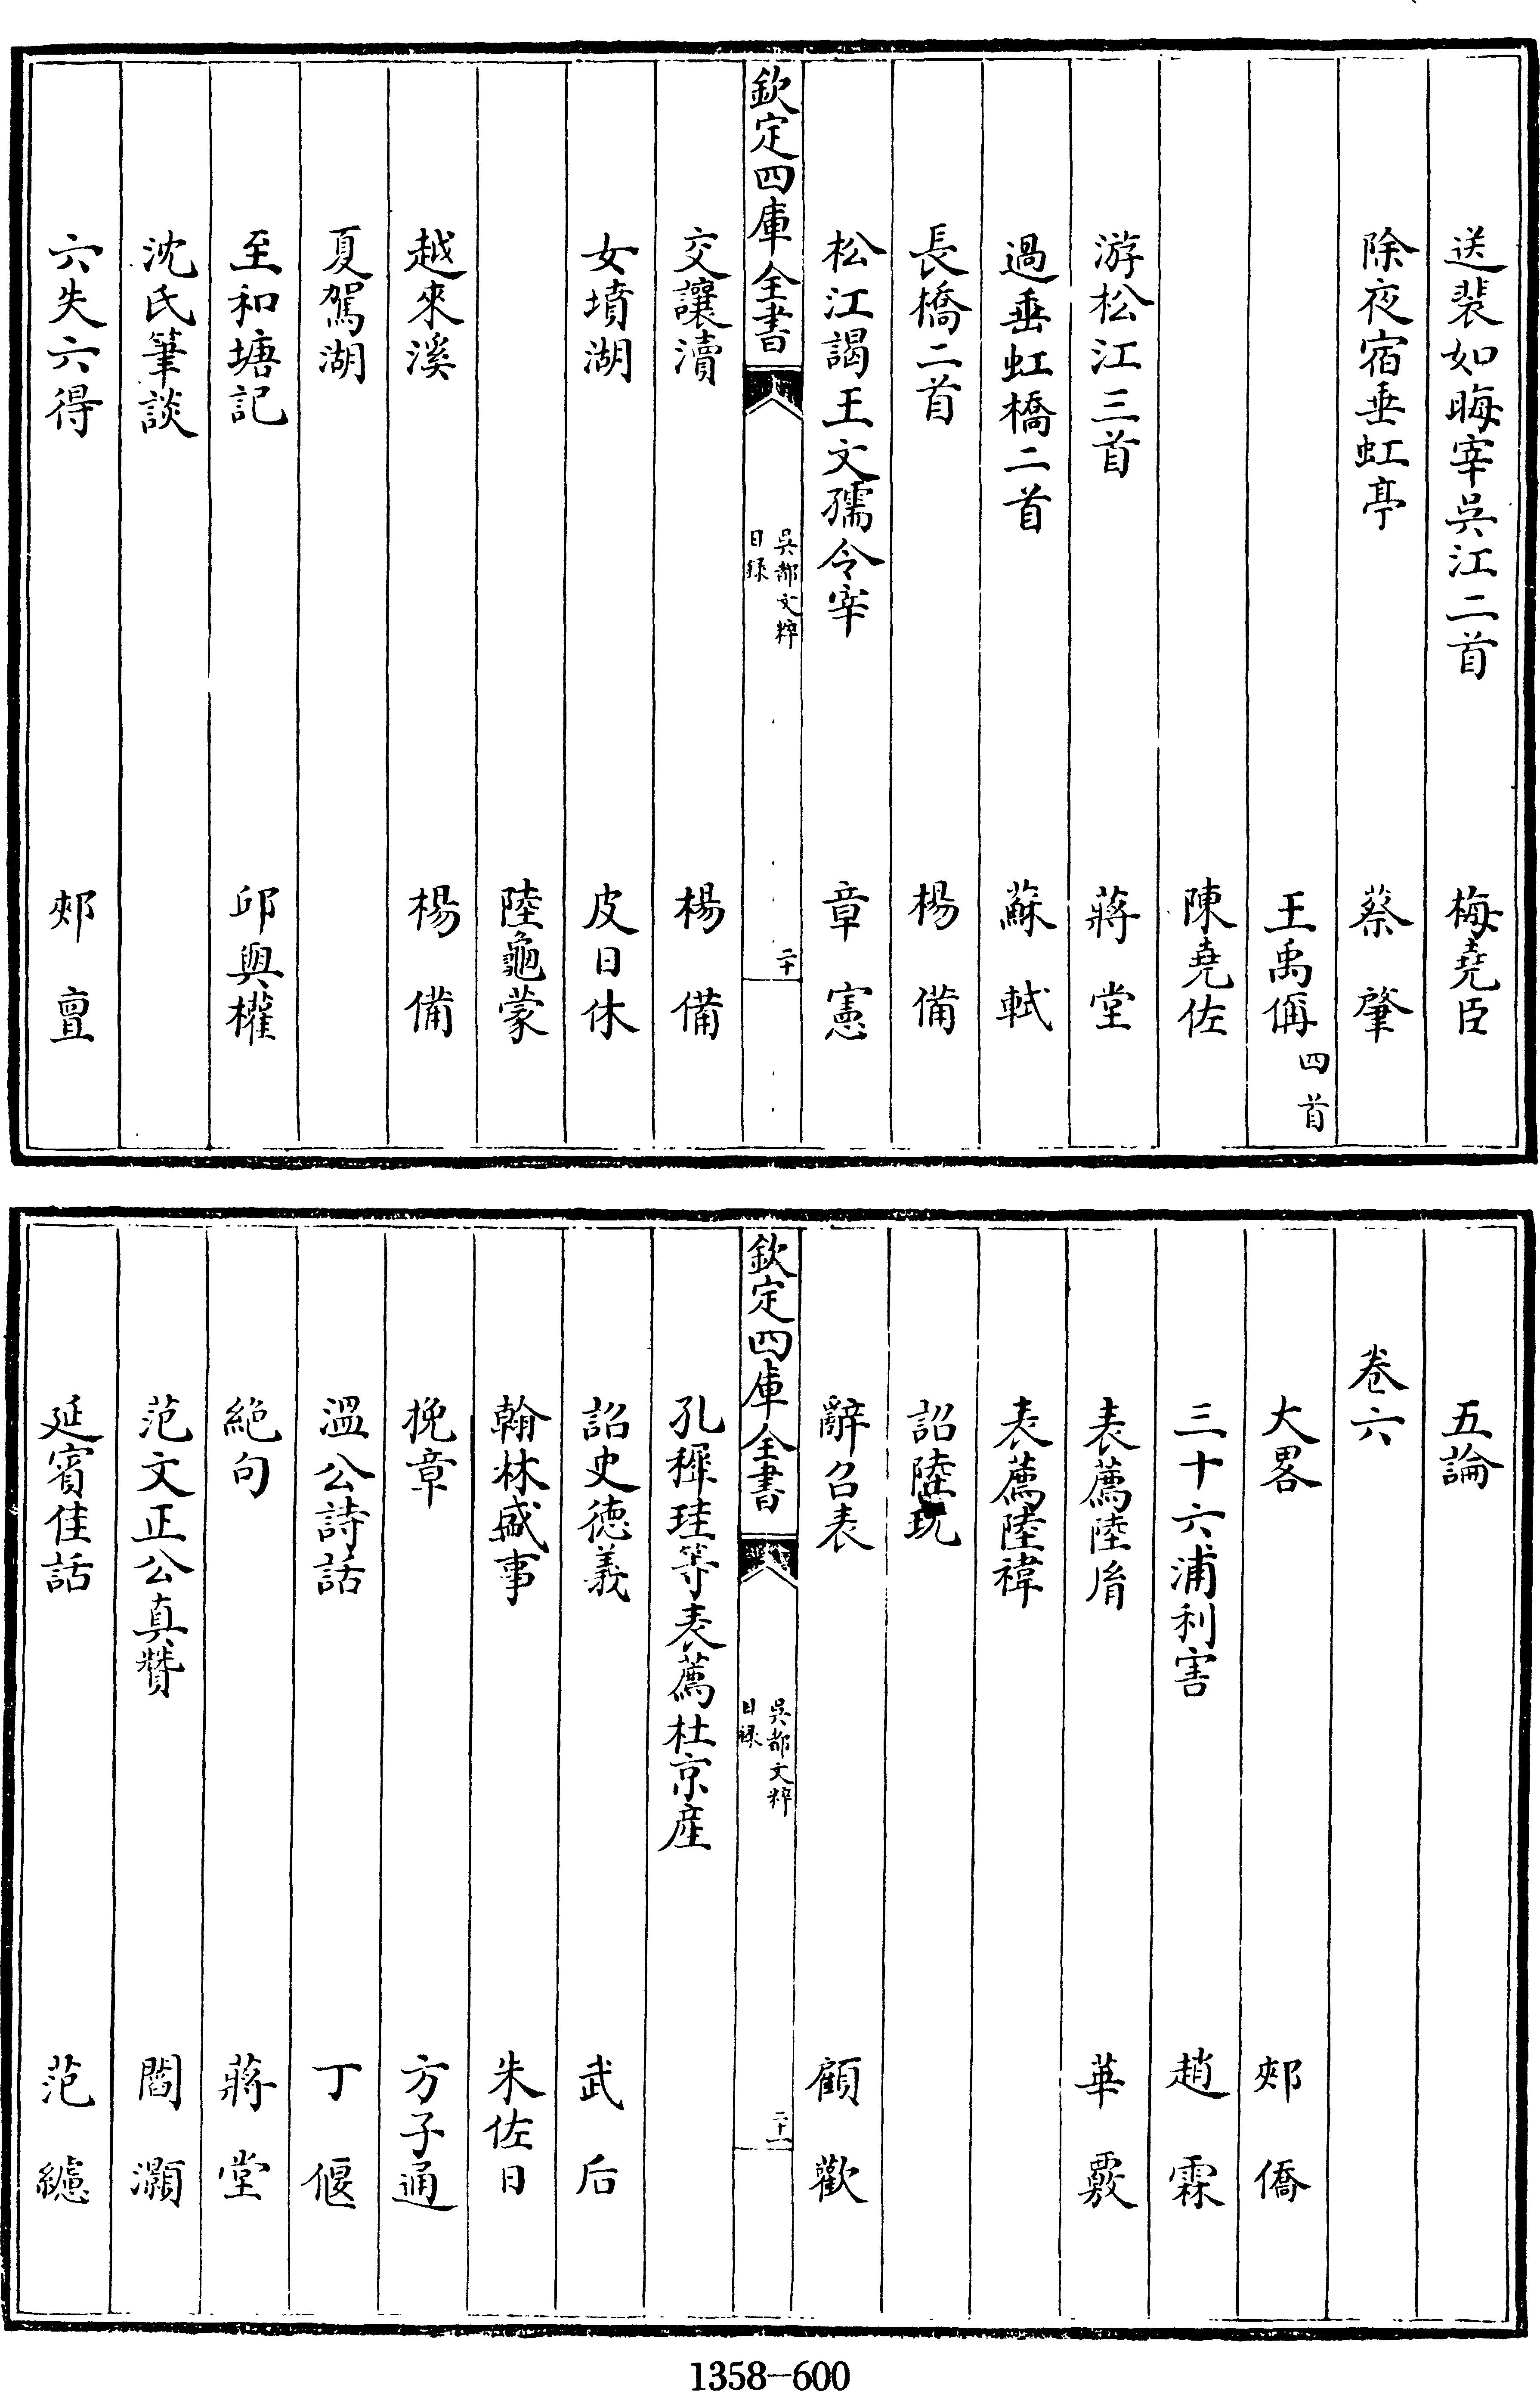 送裴如晦宰吳江二首　梅堯臣
除夜宿垂虹亭　蔡肇
王禹偁四首
陳堯佐
游松江三首　蔣堂
過垂虹橋二首　蘇軾
長橋二首　楊備
松江謁王文孺令宰　章憲
欽定四庫全書　吳都文粹目録　二十
交讓瀆　楊備
女墳湖　皮日休
陸龜蒙
越來溪　楊備
夏駕湖
至和塘記　邱與權
沈氏筆談
六失六得　郟亶
五論
卷六
大畧　郟僑
三十六浦利害　趙霖
表薦陸㣧　華覈
表薦陸禕
詔陸玩
辭召表　顧歡
欽定四庫全書　吳都文粹目録　二十一
孔稺珪等表薦杜京産
詔史德義　武后
翰林盛事　朱佐日
挽章　方子通
溫公詩話　丁偃
絕句　蔣堂
范文正公真贊　閻灝
延賓佳話　范繐
1358-600